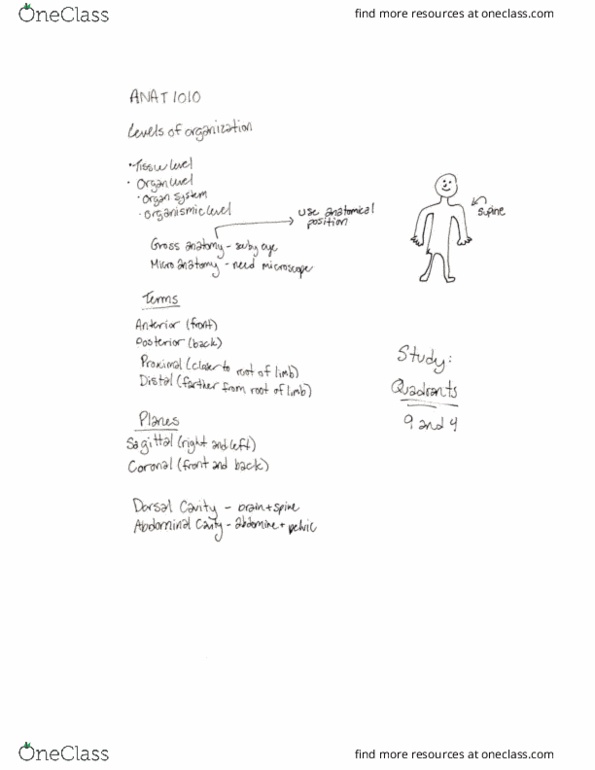 OneClass
find more resources at oneclass.com
ANAT 1010
Levels of organization
• Tissue level
• Organ level
• Organ system
• Organismic level
use anatomical
position
supine
Gross anatomy - see by eye
Micro anatomy - need microscope
Terms
Anterior (front)
Posterior (back)
Proximal (closer to root of limb)
Distal (farther from root of limb)
Study:
Quadrants
9 and 4
Planes
Sagittal (right and left)
Coronal (front and back)
Dorsal Cavity - brain + spine
Abdominal Cavity - abdomine + pelvic
OneClass
find more resources at oneclass.com